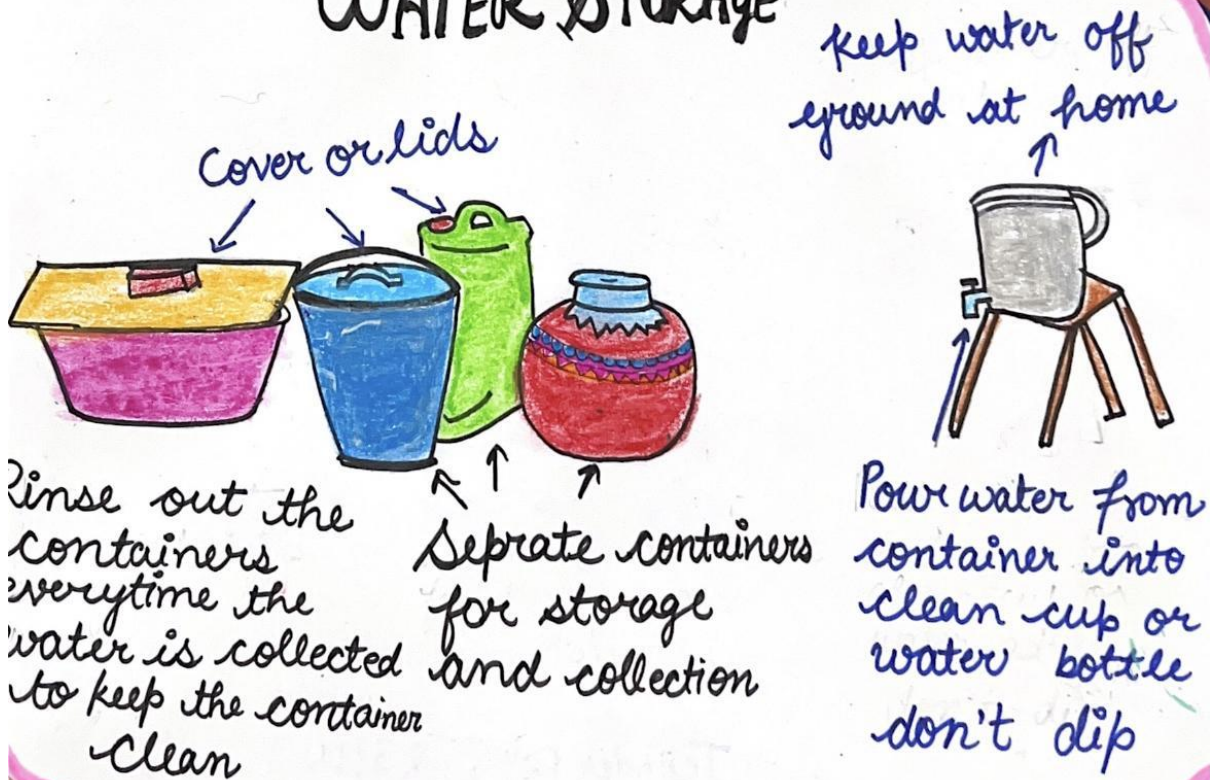 WATER STORAGE
Keep water off
ground at home
Cover or lids
Rinse out the
containers
everytime the
water is collected
to keep the container
clean
Seprate containers
for storage
and collection
Pour water from
container into
clean cup or
water bottle
don't dip